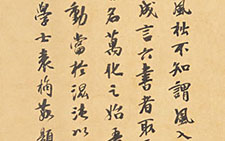 風拙不知謂風入
成言六書者取
名萬化之始
動當於混沌以
學士袁桷敬題